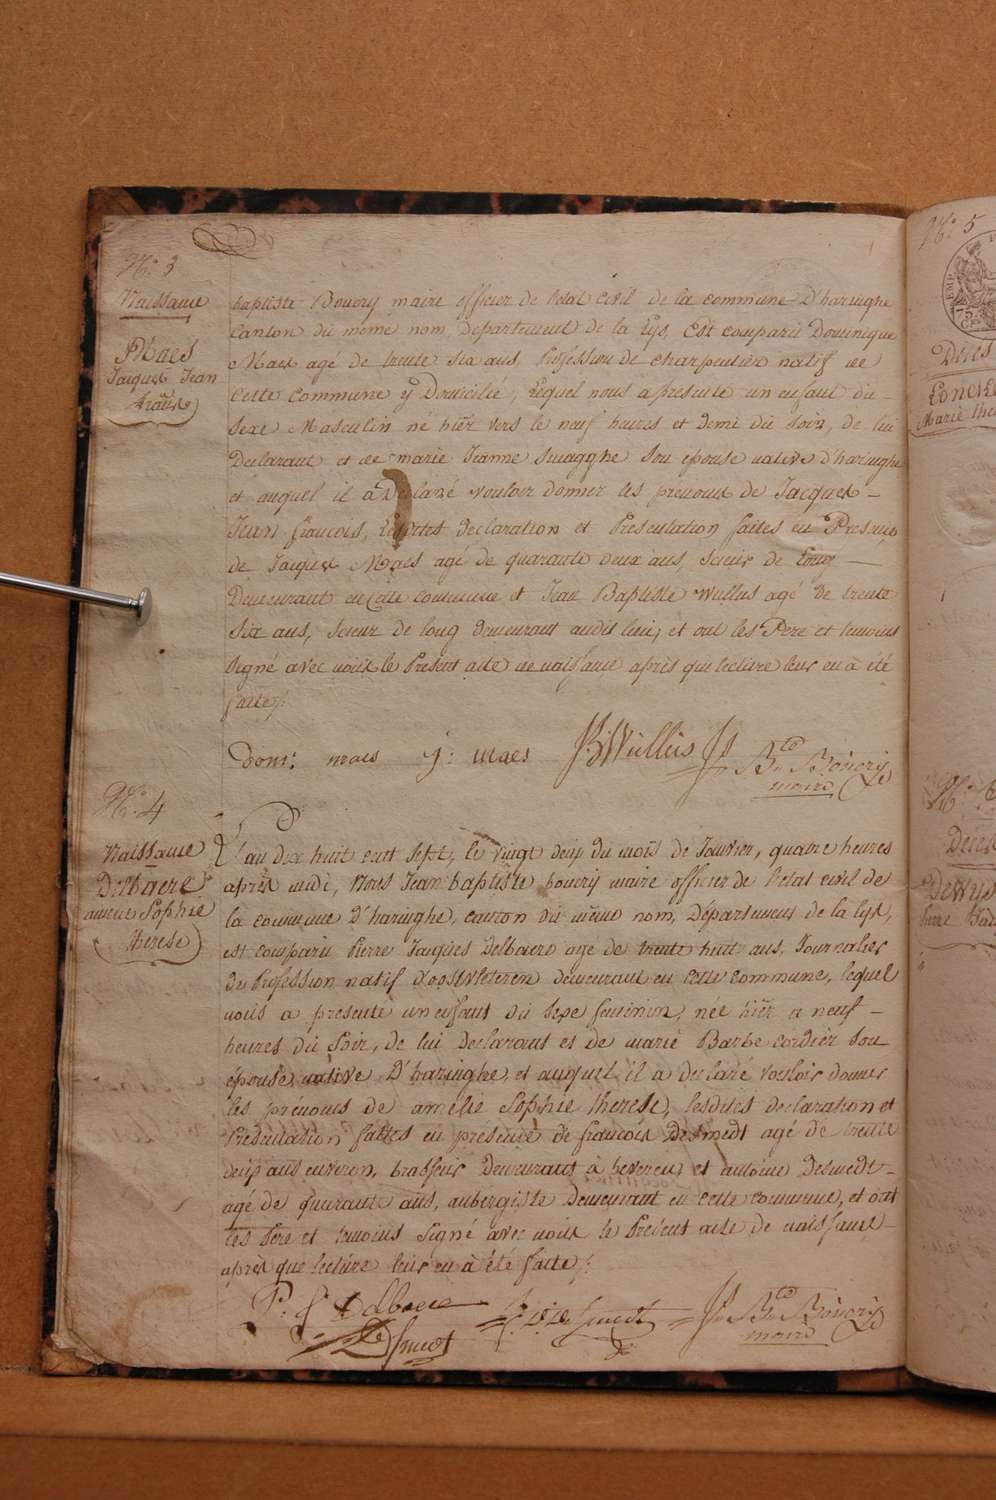 N.° 3
Naissance
Maes
Jacques Jean
franç.s
baptiste Bouery maire officier de l'etat civil de la commune D'haringhe
Canton du même nom, departement de la Lys, Est comparu Dominique
Maes agé de trente six ans, Profession de charpentier natif de
Cette Commune y Domicilié, lequel nous a presente un enfant du-
sexe Masculin né hier vers le neuf heures et demi du soir, de lui
Declarant et de marie Jeanne Swagghe son epouse native d'haringhe
et auquel il à Declaré vouloir donner les prenoms de Jacques-
Jean françois, Lesdites declaration et Presentation faites en Presence
de Jacques Maes agé de quarante deux ans, scieur de Long —
Demeurant en cette commune et Jean Baptiste Wullus agé de trente
six ans, scieur de long demeurant audit lieu; et ont les Pere et temoins
signé avec nous le Present acte de naissance après que lecture leur en à été
faite.
Dom: maes j: maes JB Wullus J B.te Bouery
maire
N.° 4
Naissance
Delbaere
amelie Sophie
therese
L'an dix huit cent sept, le vingt deux du mois de Janvier, quatre heures
après midi, Nous Jean baptiste bouery maire officier de l'etat civil de
la commune D'haringhe, canton du même nom, Département de la lys,
est comparu Pierre Jacques Delbaere agé de trente huit ans, Journalier
de Profession natif d'oostvleteren demeurant en cette commune, lequel
nous a presenté un enfant du sexe feminin, née hier a neuf-
heures du soir, de lui Declarant et de marie Barbe cordier son
épouse native D'haringhe, et auquel il a declaré vouloir donner
les prénoms de amelie Sophie therese, lesdites declaration et
Presentation faites en presence de françois Desmedt agé de trente
deux ans environ, brasseur demeurant à beveren, et antoine Desmedt-
agé de quarante ans, aubergiste demeurant en cette commune, et ont
les Pere et temoins signé avec nous le Present acte de naissance-
après que lecture leur en à été faite.
P: J Delbaere De Smedt J B.te Bouery
De Smedt maire
N.° 5
Deces
Marie
Deces